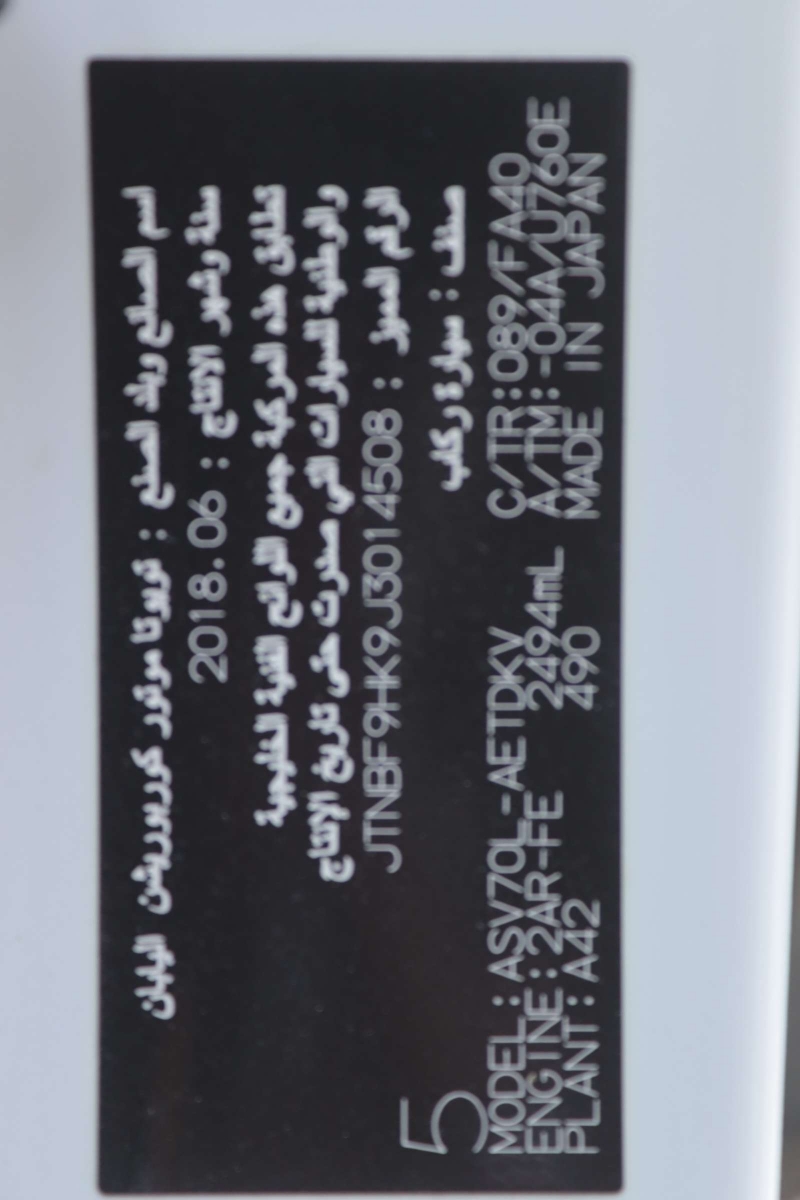 اسم الصانع وبلد الصنع : تويوتا موتور كوربوريشن اليابان
سنة وشهر الانتاج : 2018.06
تطابق هذه المركبة جميع اللوائح الفنية الخليجية
والوطنية للسيارات التي صدرت حتى تاريخ الانتاج
الرقم المميز : JTNBF9HK9J3014508
صنف : سيارة ركاب
5
MODEL : ASV70L-AETDKV C/TR:089/FA40
ENGINE : 2AR-FE 2494mL A/TM:-04A/U760E
PLANT : A42 490 MADE IN JAPAN